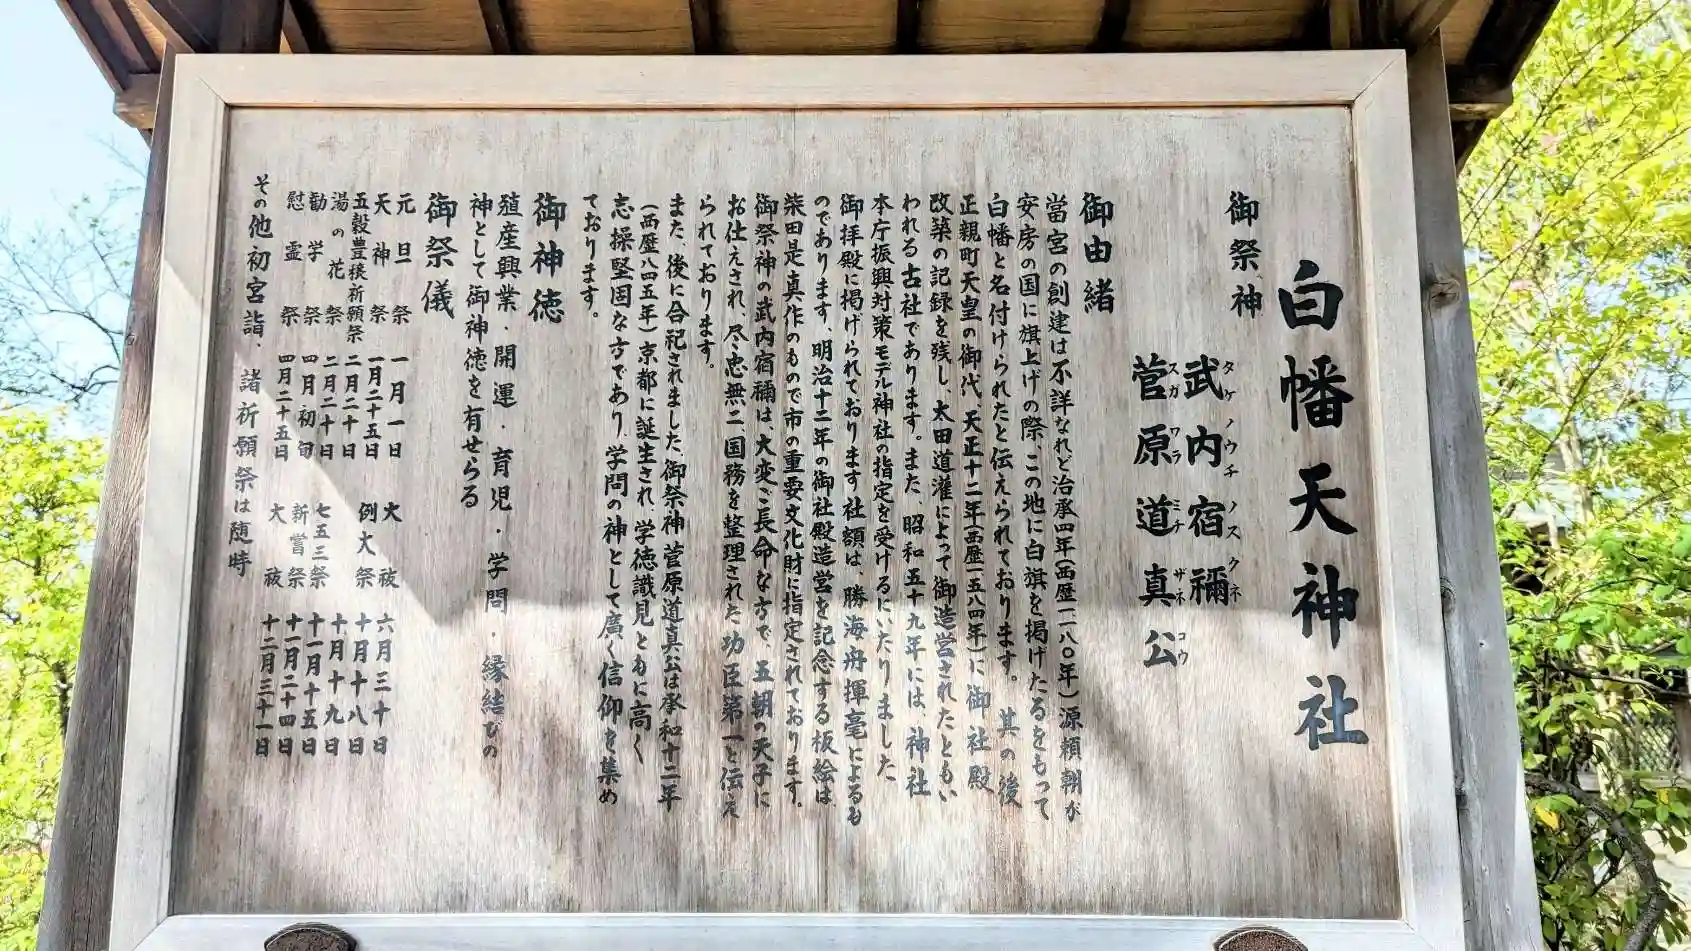 白幡天神社
御祭神
武内宿禰
タケノウチノスクネ
菅原道真公
スガワラミチザネコウ
御由緒
當宮の創建は不詳なれど治承四年(西歴一一八〇年)源頼朝が
安房の国に旗上げの際、この地に白旗を掲げたるをもって
白幡と名付けられたと伝えられております。其の後
正親町天皇の御代 天正十二年(西歴一五八四年)に御社殿
改築の記録を残し、太田道灌によって御造営されたともい
われる古社であります。また、昭和五十九年には、神社
本庁振興対策モデル神社の指定を受けるにいたりました
御拝殿に掲げられております社額は、勝海舟揮毫によるも
のであります、明治十二年の御社殿造営を記念する板絵は
柴田是真作のもので市の重要文化財に指定されております。
御祭神の武内宿禰は、大変ご長命な方で、五朝の天子に
お仕えされ、尽忠無二、国務を整理された功臣第一と伝え
られております。
また、後に合祀されました、御祭神菅原道真公は承和十二年
(西歴八四五年)京都に誕生され、学徳識見ともに高く
志操堅固な方であり、学問の神として廣く信仰を集め
ております。
御神徳
殖産興業・開運・育児・学問・縁結びの
神として御神徳を有せらる
御祭儀
元旦祭 一月一日
天神祭 一月二十五日
五穀豊穣祈願祭 二月二十日
湯の花祭 二月二十日
勧学祭 四月初旬
慰霊祭 四月二十五日
大祓 六月三十日
例大祭 十月十八日
十月十九日
七五三祭 十一月十五日
新嘗祭 十一月二十四日
大祓 十二月三十一日
その他初宮詣、諸祈願祭は随時